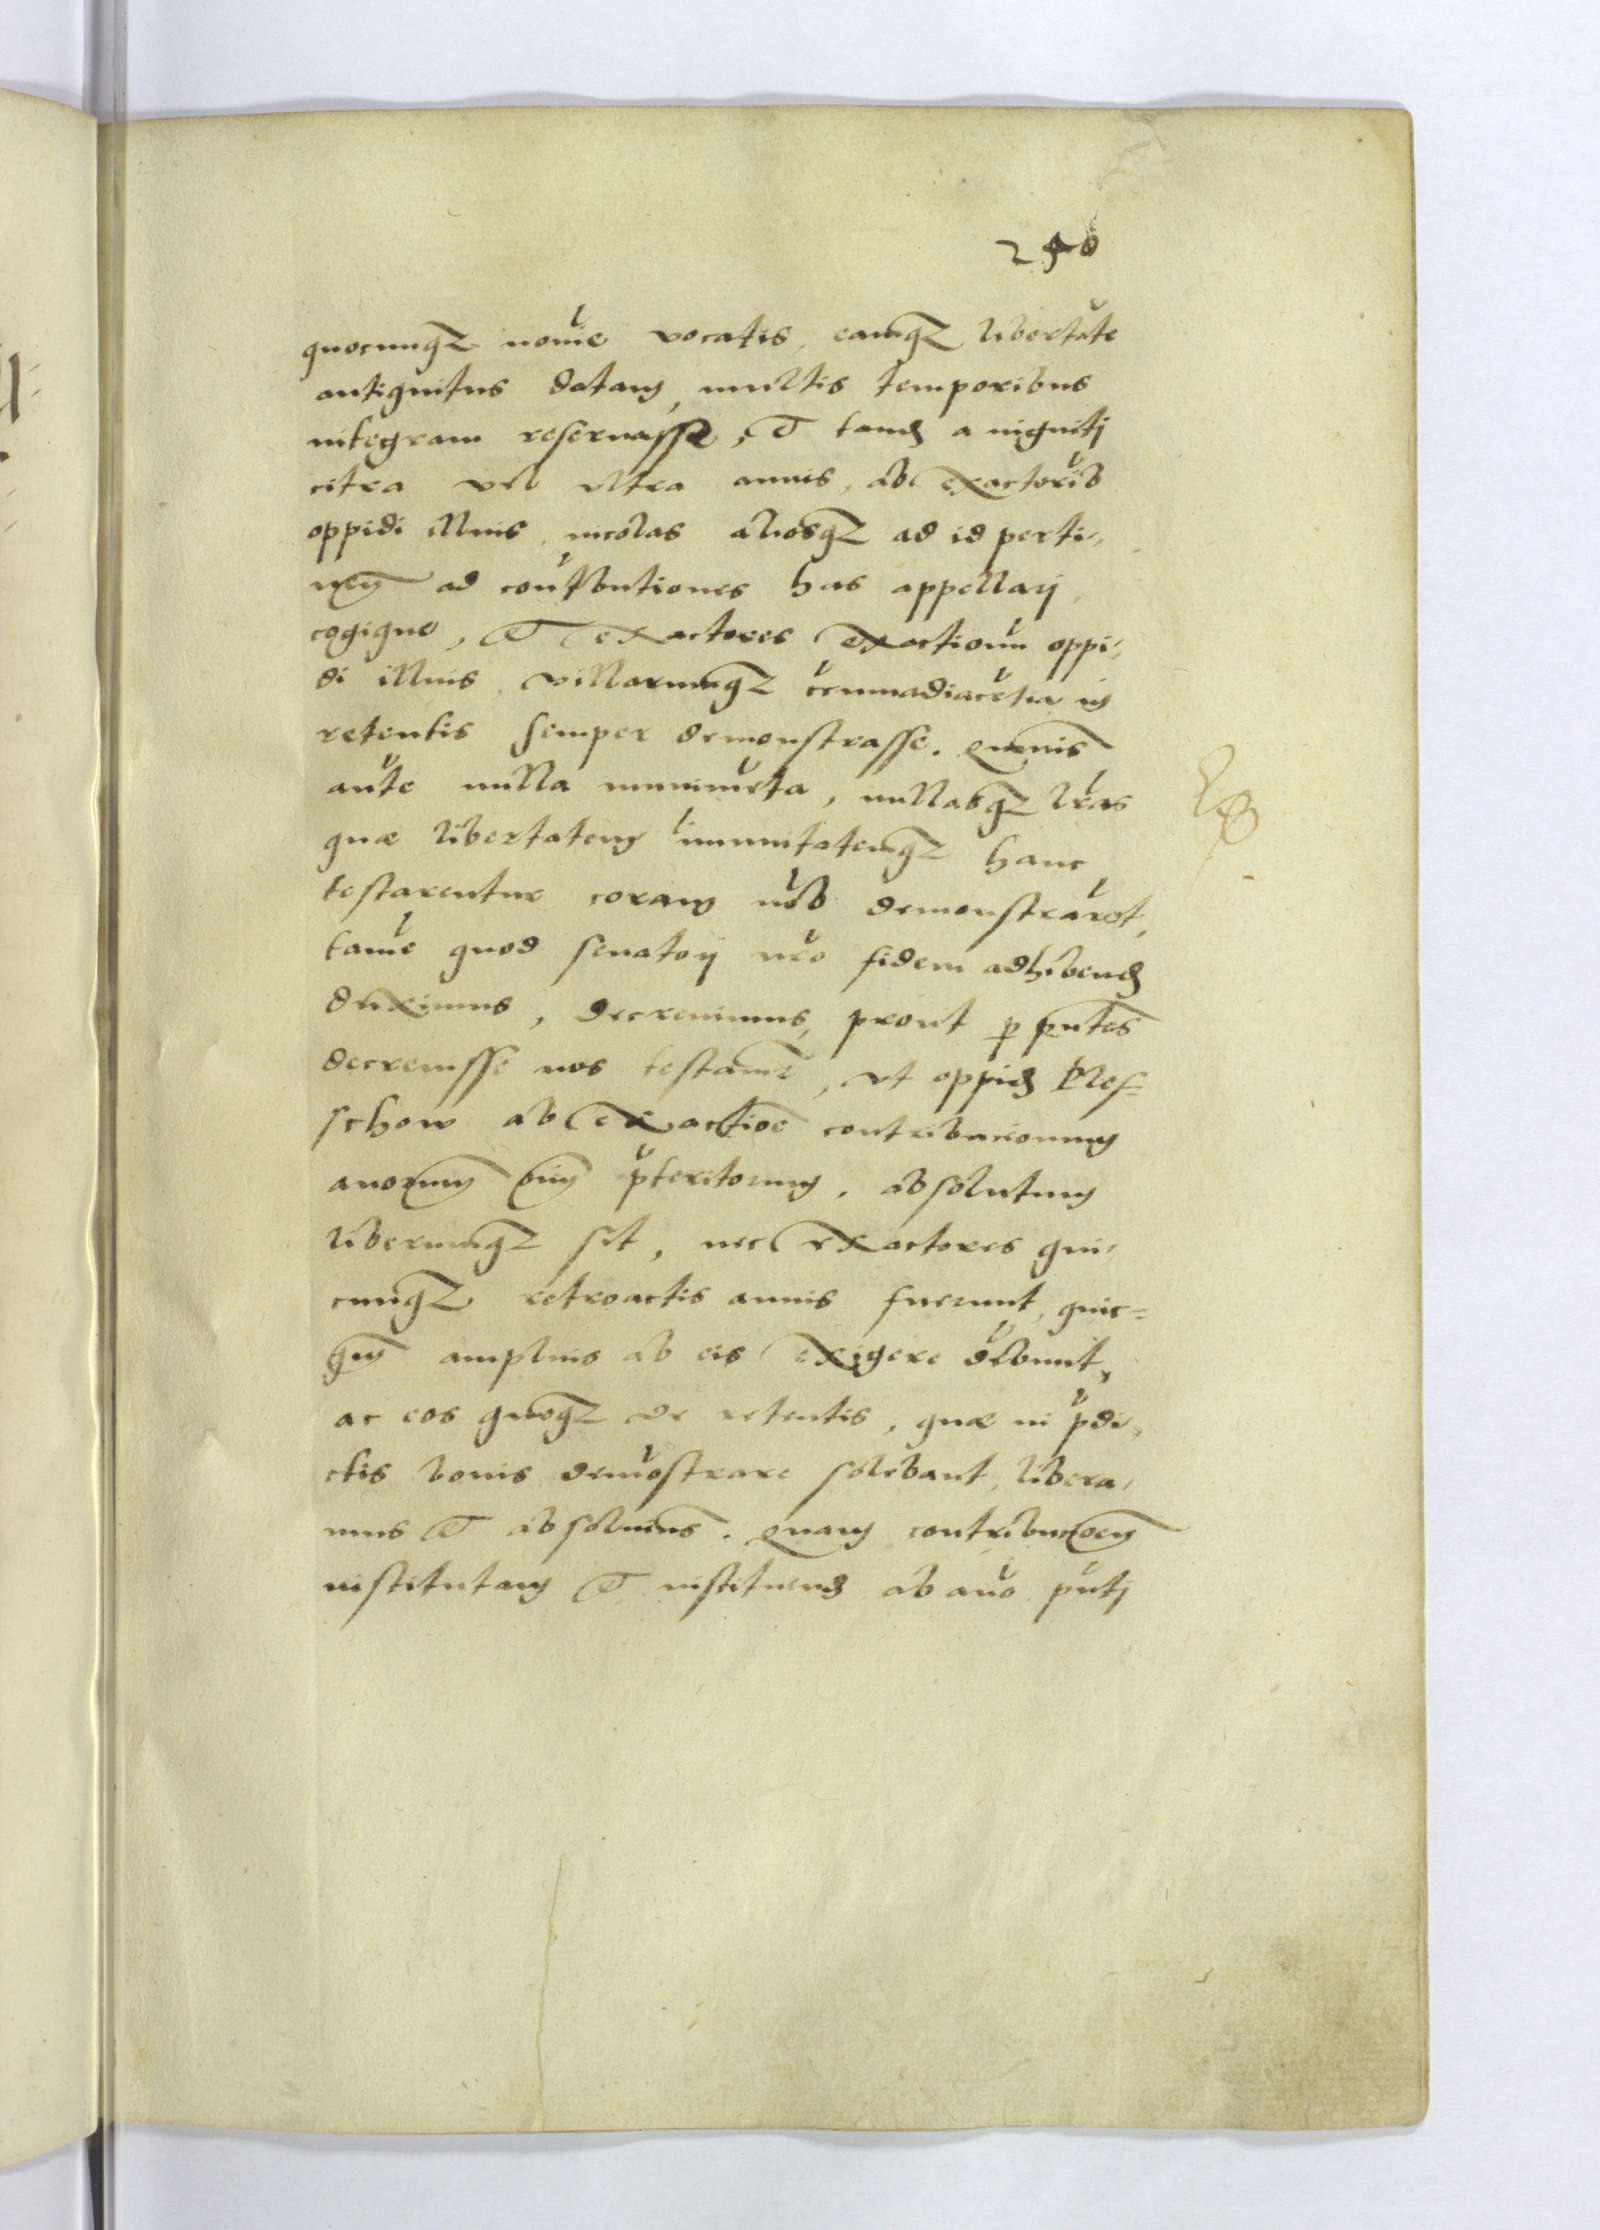 246
quocunqz nomīe vocatis, eamqz libertatē
antiquitus datam, multis temporibus
integram reseruasse, et tand a viginti
citra vel vltra annis, ab exactorib
oppidi illius incolas aliosqz ad id perti-
nen ad contbutiones has appellarj
cogique, et exactores exactionū oppi-
di illius, villarumqz circumadiacētiū in
retentis semper demonstrasse. Quāuis
autē nulla munimēta, nullasqz lras
quæ libertatem imunitatemqz hanc
testarentur coram nob demonstrarēt,
tamē quod senatorj nro fidem adhibend
duximus, decreuimus, prout p pntes
decreuisse nos testamr, vt oppid Ples-
schow ab exactioe contribucionum
anorum oium pteritorum, absolutum
liberumqz sit, nec exactores qui-
cunqz retroactis annis fuerunt, quic-
qm amplius ab eis exigere dēbunt,
ac eos quoqz de retentis, quæ in pdi-
ctis bonis demōstrare solebant, libera-
mus et absoluims. Quam contribucoem
institutam et instituend ab ano pntj